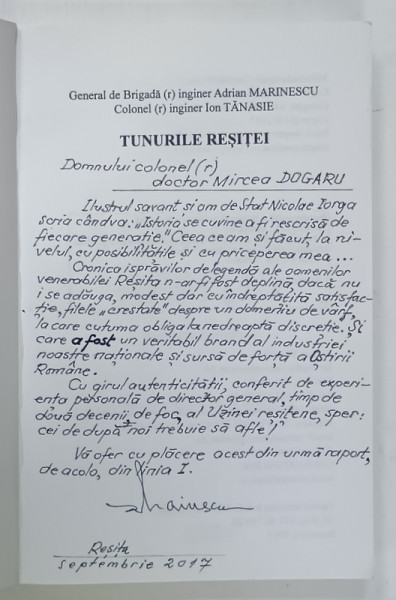 General de Brigadă (r) inginer Adrian MARINESCU
Colonel (r) inginer Ion TĂNASIE
TUNURILE REȘIȚEI
Domnului colonel (r)
doctor Mircea DOGARU
Ilustrul savant și om de Stat Nicolae Iorga
scria cândva: „Istoria se cuvine a fi rescrisă de
fiecare generație." Ceea ce am și făcut, la ni-
velul, cu posibilitățile și cu priceperea mea...
Cronica isprăvilor de legendă ale oamenilor
venerabilei Reșița n-ar fi fost deplină, dacă nu
i se adăuga, modest dar cu îndreptățită satisfac-
ție, filele „crestate" despre un domeniu de vârf,
la care cutuma obliga la nedreaptă discreție. Și
care a fost un veritabil brand al industriei
noastre naționale și sursă de forță a Oștirii
Române.
Cu girul autenticității, conferit de experi-
ența personală de director general, timp de
două decenii, de foc, al Uzinei reșițene, sper:
cei de după noi trebuie să afle!
Vă ofer cu plăcere acest din urmă raport,
de acolo, din linia I.
Reșița
septembrie 2017